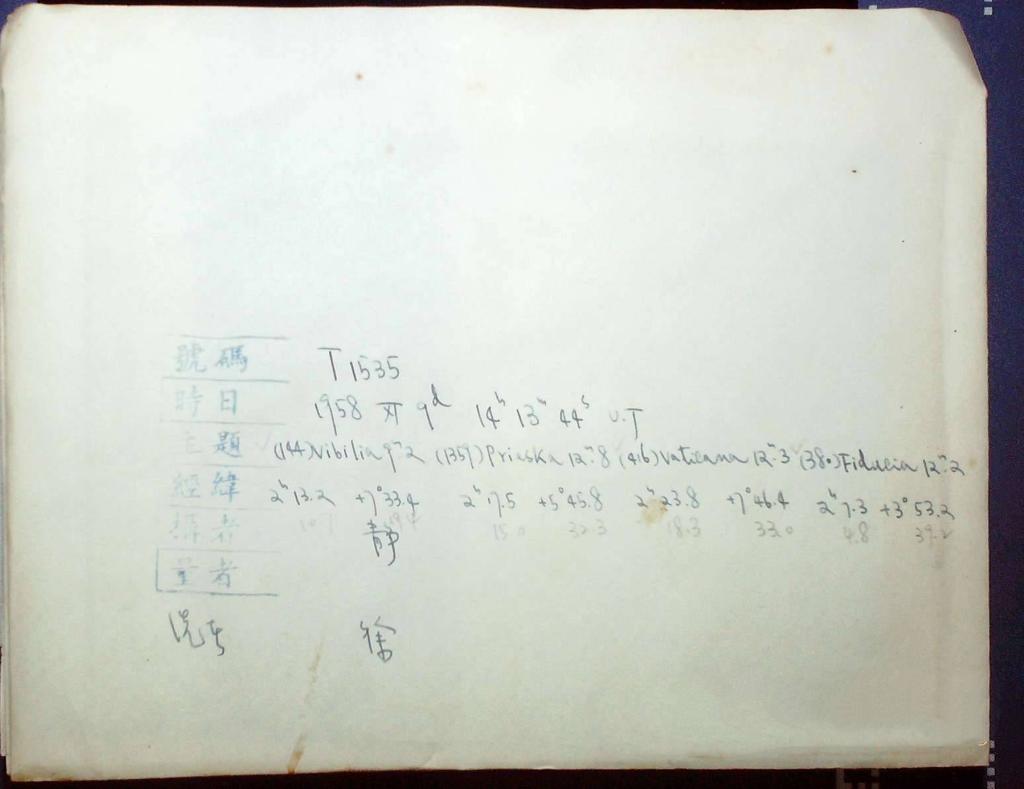 號碼 T 1535
時日 1958 XI 9ᵈ 14ʰ 13ᵐ 44ˢ U.T
主題 (144) Vibilia 9ᵐ2 (1359) Prieska 12ᵐ8 (416) Vaticana 12ᵐ3 (380) Fiducia 12ᵐ2
經緯 2ʰ 13.2 +7°33.4 2ʰ 7.5 +5°45.8 2ʰ 23.8 +7°46.4 2ʰ 7.3 +3°53.2
攝者 靜 15.0 32.3 18.3 33.0 4.8 39.2
量者
徐